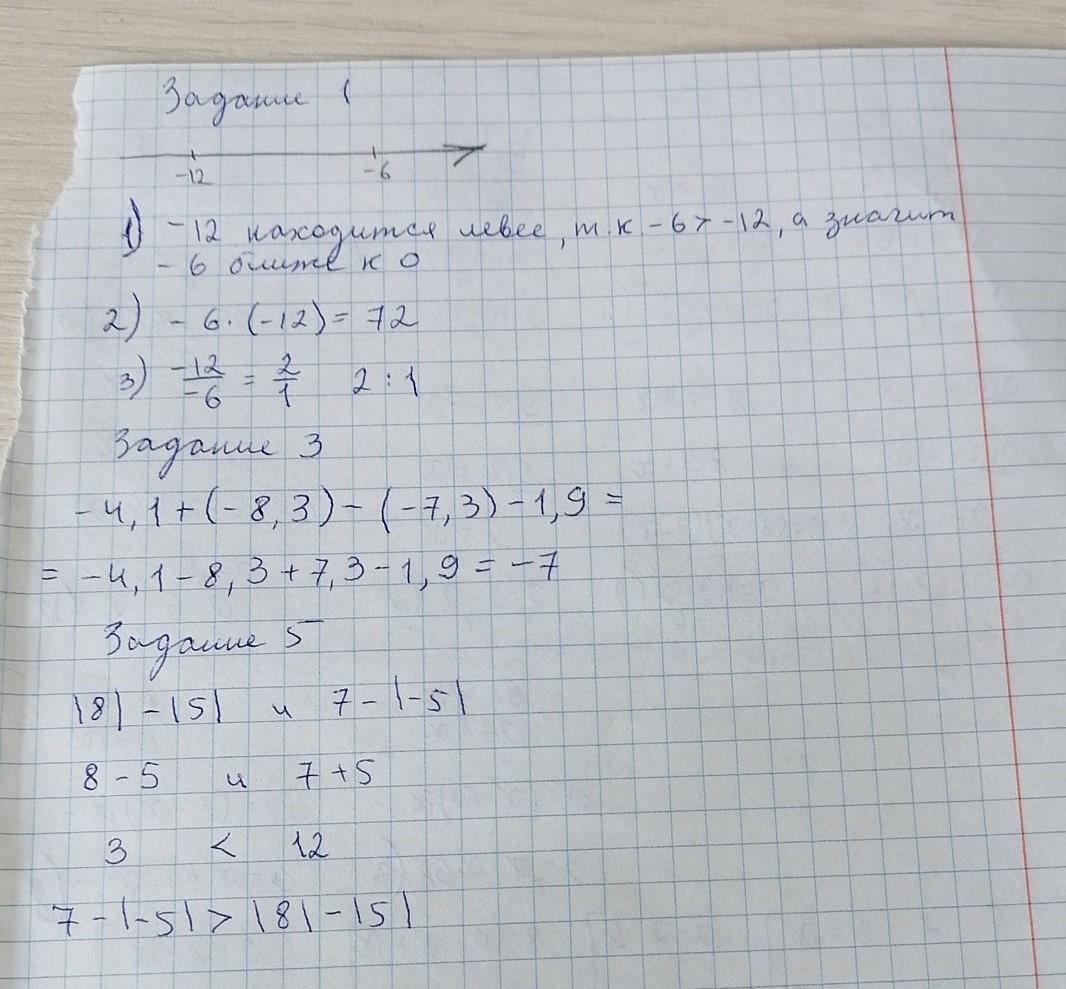 Задание 1
-12 -6
1) -12 находится левее, т.к -6 > -12, а значит
-6 ближе к 0
2) -6·(-12)= 72
3) -12/-6 = 2/1 2:1
Задание 3
-4,1+(-8,3)-(-7,3)-1,9 =
= -4,1-8,3+7,3-1,9 = -7
Задание 5
|8|-|5| и 7-|-5|
8-5 и 7+5
3 < 12
7-|-5| > |8|-|5|